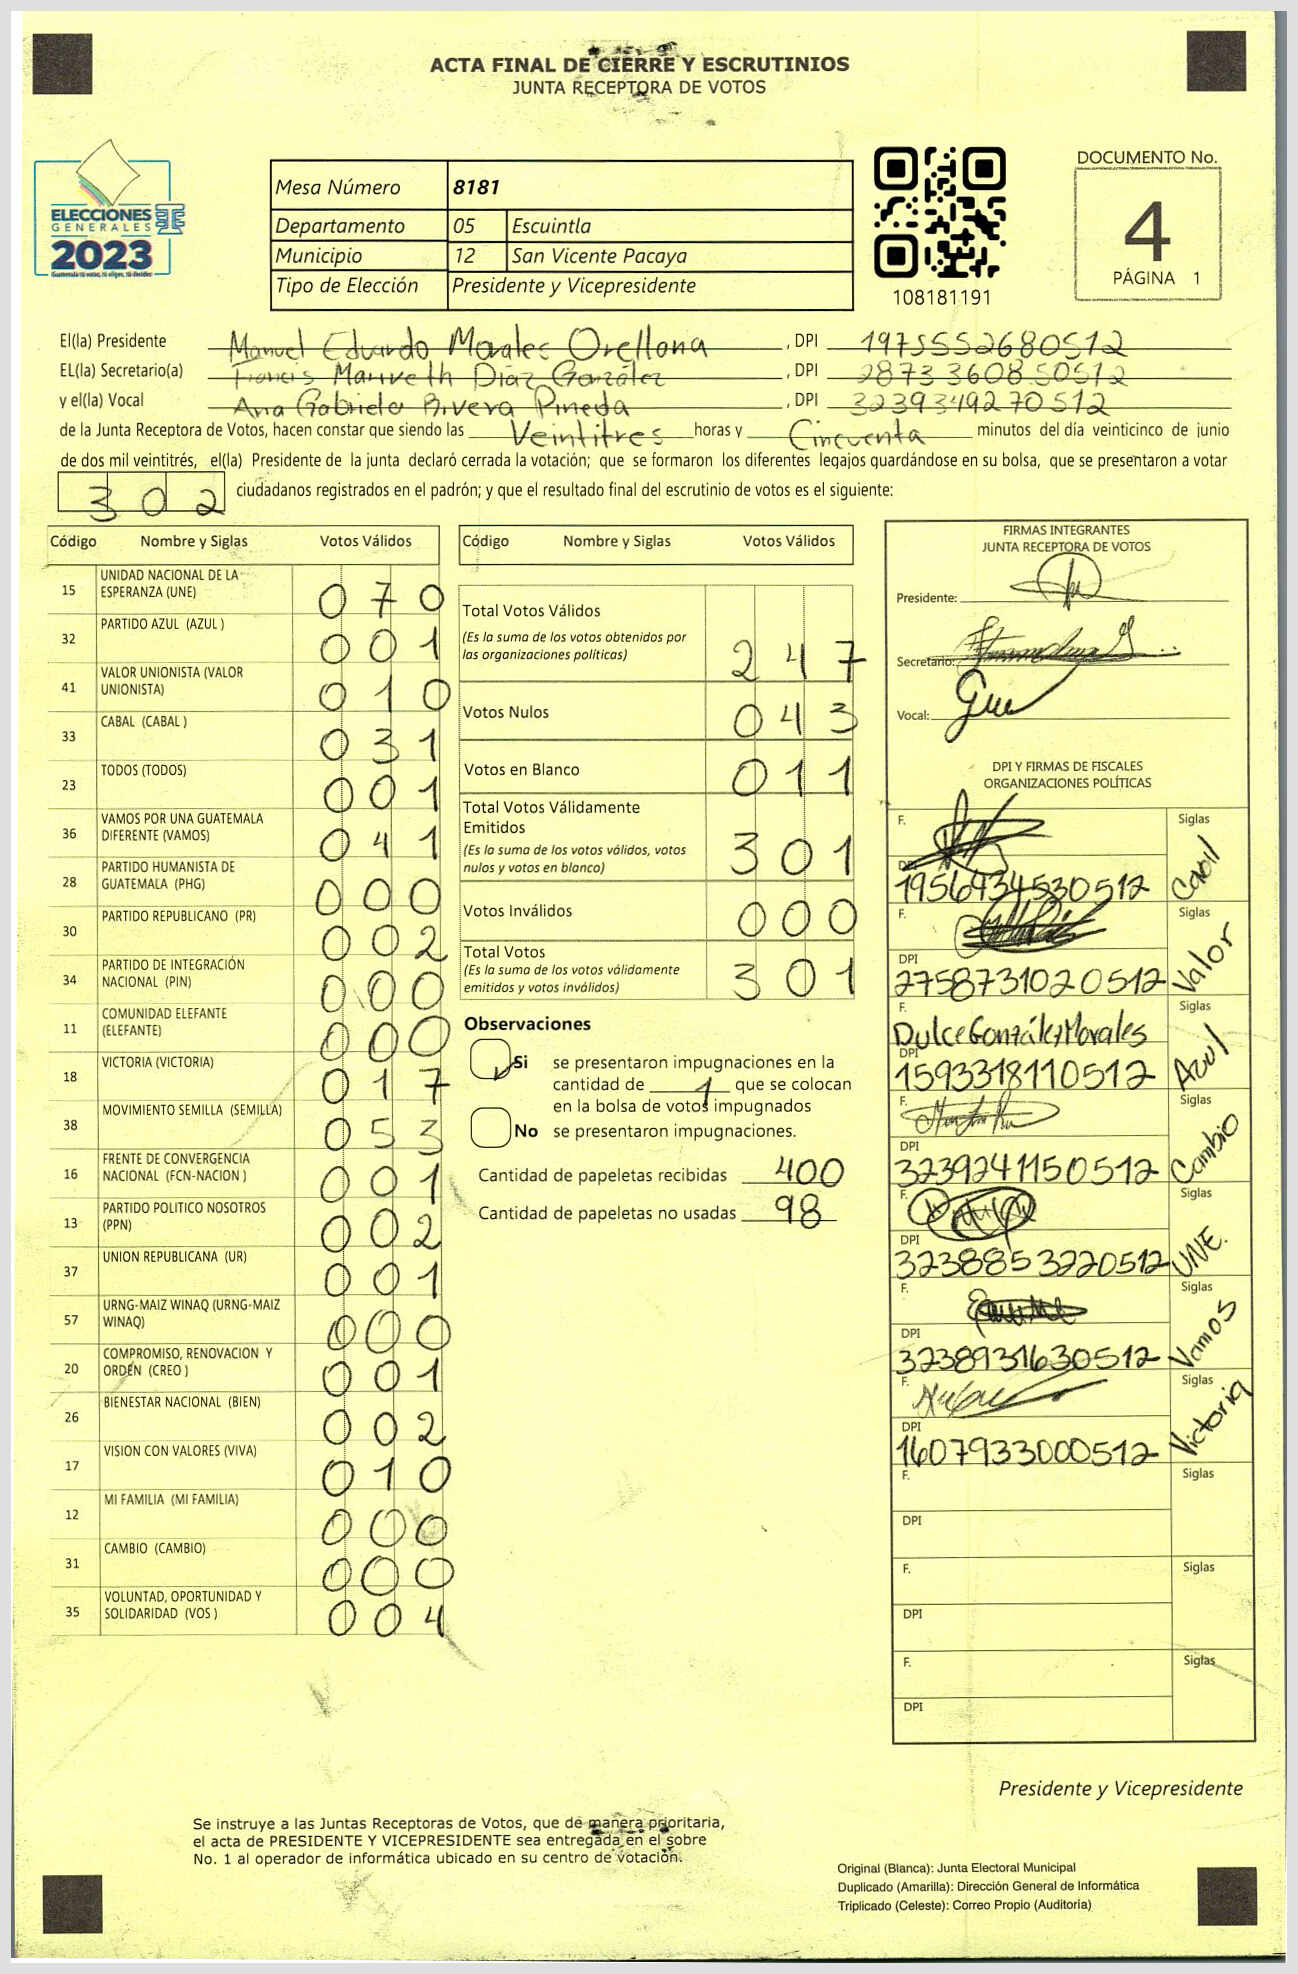 ACTA FINAL DE CIERRE Y ESCRUTINIOS
JUNTA RECEPTORA DE VOTOS
ELECCIONES
GENERALES
2023
Mesa Número 8181
Departamento 05 Escuintla
Municipio 12 San Vicente Pacaya
Tipo de Elección Presidente y Vicepresidente
108181191
DOCUMENTO No.
4
PÁGINA 1
El(la) Presidente Manuel Eduardo Morales Orellana, DPI 1975552680512
EL(la) Secretario(a) Francis Mariveth Díaz González, DPI 2873360850512
y el(la) Vocal Ana Gabriela Rivera Pineda, DPI 3239349270512
de la Junta Receptora de Votos, hacen constar que siendo las Veintitres horas y Cincuenta minutos del día veinticinco de junio
de dos mil veintitrés, el(la) Presidente de la junta declaró cerrada la votación; que se formaron los diferentes legajos guardándose en su bolsa, que se presentaron a votar
302 ciudadanos registrados en el padrón; y que el resultado final del escrutinio de votos es el siguiente:
Código Nombre y Siglas Votos Válidos
15 UNIDAD NACIONAL DE LA ESPERANZA (UNE) 070
32 PARTIDO AZUL (AZUL ) 001
41 VALOR UNIONISTA (VALOR UNIONISTA) 010
33 CABAL (CABAL ) 031
23 TODOS (TODOS) 001
36 VAMOS POR UNA GUATEMALA DIFERENTE (VAMOS) 041
28 PARTIDO HUMANISTA DE GUATEMALA (PHG) 000
30 PARTIDO REPUBLICANO (PR) 002
34 PARTIDO DE INTEGRACIÓN NACIONAL (PIN) 000
11 COMUNIDAD ELEFANTE (ELEFANTE) 000
18 VICTORIA (VICTORIA) 017
38 MOVIMIENTO SEMILLA (SEMILLA) 053
16 FRENTE DE CONVERGENCIA NACIONAL (FCN-NACION ) 001
13 PARTIDO POLITICO NOSOTROS (PPN) 002
37 UNION REPUBLICANA (UR) 001
57 URNG-MAIZ WINAQ (URNG-MAIZ WINAQ) 000
20 COMPROMISO, RENOVACION Y ORDEN (CREO ) 001
26 BIENESTAR NACIONAL (BIEN) 002
17 VISION CON VALORES (VIVA) 010
12 MI FAMILIA (MI FAMILIA) 000
31 CAMBIO (CAMBIO) 000
35 VOLUNTAD, OPORTUNIDAD Y SOLIDARIDAD (VOS ) 004
Código Nombre y Siglas Votos Válidos
Total Votos Válidos 247
(Es la suma de los votos obtenidos por
las organizaciones políticas)
Votos Nulos 043
Votos en Blanco 011
Total Votos Válidamente
Emitidos 301
(Es la suma de los votos válidos, votos
nulos y votos en blanco)
Votos Inválidos 000
Total Votos 301
(Es la suma de los votos válidamente
emitidos y votos inválidos)
Observaciones
Si se presentaron impugnaciones en la
cantidad de 1 que se colocan
en la bolsa de votos impugnados
No se presentaron impugnaciones.
Cantidad de papeletas recibidas 400
Cantidad de papeletas no usadas 98
FIRMAS INTEGRANTES
JUNTA RECEPTORA DE VOTOS
Presidente:
Secretario:
Vocal:
DPI Y FIRMAS DE FISCALES
ORGANIZACIONES POLÍTICAS
F. Siglas
DPI 1956934530512 Cabal
F. Siglas
DPI 2758731020512 Valor
F. Dulce González Morales Siglas
DPI 1593318110512 Azul
F. Siglas
DPI 3239241150512 Cambio
F. Siglas
DPI 3238853220512 UNE.
F. Siglas
DPI 3238931630512 Vamos
F. Siglas
DPI 1607933000512 Victoria
F. Siglas
DPI
F. Siglas
DPI
F. Siglas
DPI
Presidente y Vicepresidente
Se instruye a las Juntas Receptoras de Votos, que de manera prioritaria,
el acta de PRESIDENTE Y VICEPRESIDENTE sea entregada en el sobre
No. 1 al operador de informática ubicado en su centro de votación.
Original (Blanca): Junta Electoral Municipal
Duplicado (Amarilla): Dirección General de Informática
Triplicado (Celeste): Correo Propio (Auditoria)